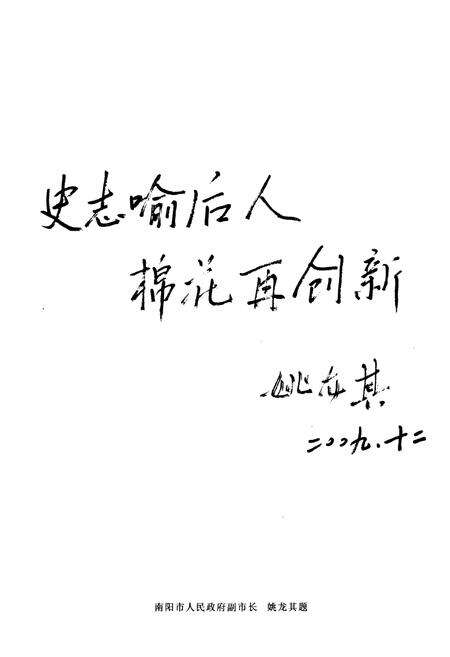 史志喻后人
棉花再创新
姚龙其
二〇〇九.十二
南阳市人民政府副市长 姚龙其题